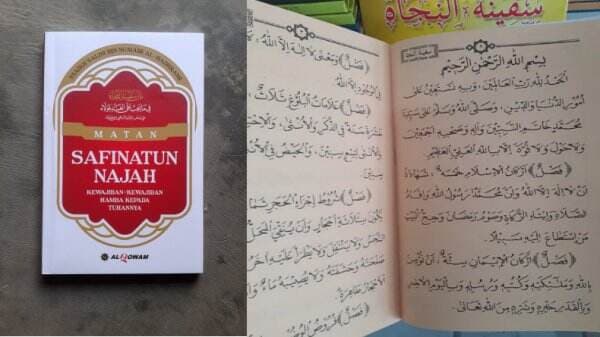 MATAN
SAFINATUN
NAJAH
KEWAJIBAN-KEWAJIBAN
HAMBA KEPADA
TUHANNYA
ALQOWAM
سفينة النجاة
بِسْمِ اللهِ الرَّحْمٰنِ الرَّحِيْمِ
اَلْحَمْدُ لِلّٰهِ رَبِّ الْعَالَمِيْنَ، وَبِهِ نَسْتَعِيْنُ عَلَى
أُمُوْرِ الدُّنْيَا وَالدِّيْنِ، وَصَلَّى اللهُ وَسَلَّمَ عَلَى سَيِّدِنَا
مُحَمَّدٍ خَاتَمِ النَّبِيِّيْنَ وَآلِهِ وَصَحْبِهِ أَجْمَعِيْنَ
وَلَا حَوْلَ وَلَا قُوَّةَ إِلَّا بِاللهِ الْعَلِيِّ الْعَظِيْمِ
(فَصْلٌ) أَرْكَانُ الْإِسْلَامِ خَمْسَةٌ: شَهَادَةُ
أَنْ لَا إِلٰهَ إِلَّا اللهُ وَأَنَّ مُحَمَّدًا رَسُوْلُ اللهِ وَإِقَامُ
الصَّلَاةِ وَإِيْتَاءُ الزَّكَاةِ وَصَوْمُ رَمَضَانَ وَحِجُّ الْبَيْتِ
مَنِ اسْتَطَاعَ إِلَيْهِ سَبِيْلًا
(فَصْلٌ) أَرْكَانُ الْإِيْمَانِ سِتَّةٌ: أَنْ تُؤْمِنَ
بِاللهِ وَمَلَائِكَتِهِ وَكُتُبِهِ وَرُسُلِهِ وَبِالْيَوْمِ الْآخِرِ
وَبِالْقَدَرِ خَيْرِهِ وَشَرِّهِ مِنَ اللهِ تَعَالَى
(فَصْلٌ) وَمَعْنَى لَا إِلٰهَ إِلَّا اللهُ:
فِي الْوُجُوْدِ إِلَّا اللهُ
(فَصْلٌ) عَلَامَاتُ الْبُلُوْغِ ثَلَاثٌ:
عَشْرَةَ سَنَةً فِي الذَّكَرِ وَالْأُنْثَى،
لِتِسْعِ سِنِيْنَ، وَالْحَيْضُ فِي الْأُنْثَى
سِنِيْنَ
(فَصْلٌ) شُرُوْطُ إِجْزَاءِ الْحَجَرِ
بِثَلَاثَةِ أَحْجَارٍ، وَأَنْ يُنْقِيَ الْمَحَلَّ
النَّجَسُ، وَلَا يَنْتَقِلَ وَلَا يَطْرَأَ عَلَيْهِ آخَرُ
صَفْحَتَهُ وَحَشَفَتَهُ وَلَا يُصِيْبَهُ مَاءٌ
الْأَحْجَارُ طَاهِرَةً
(فَصْلٌ) فُرُوْضُ الْوُضُوْءِ
سفينة النجاة